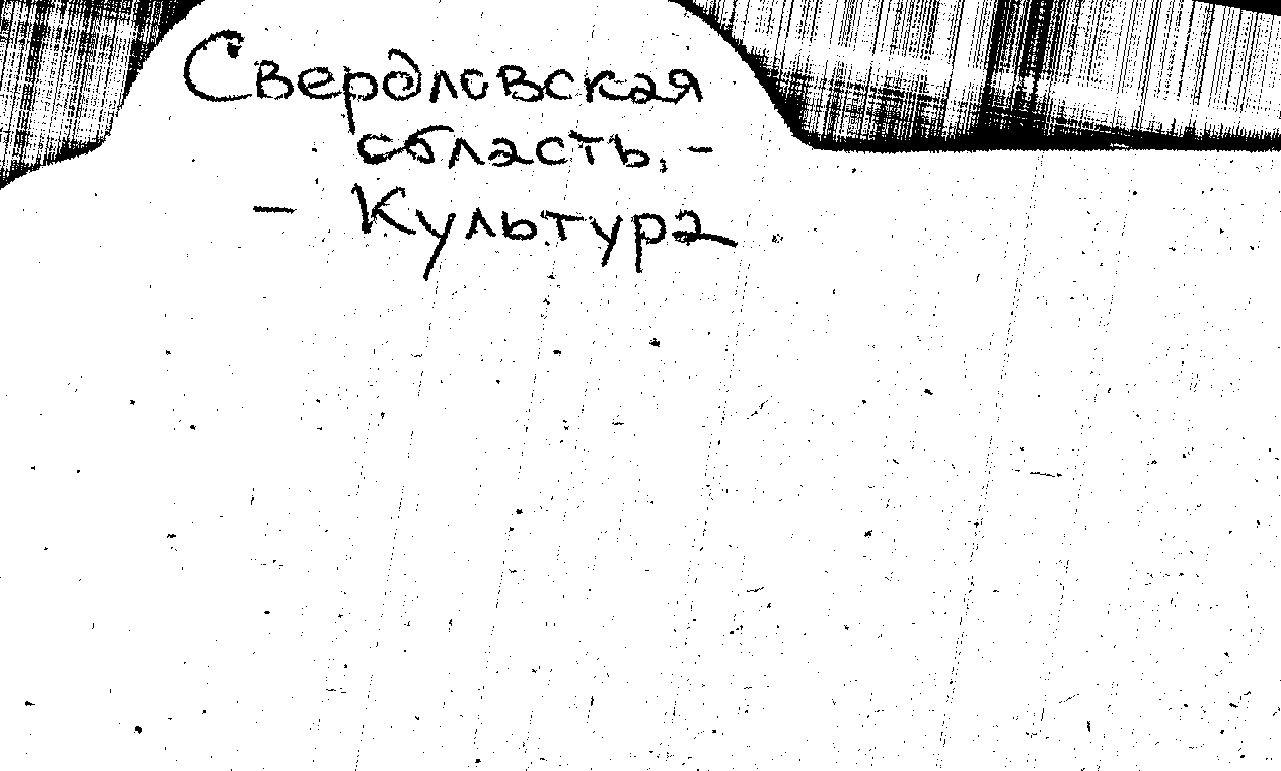 Свердловская
область, -
- Культура